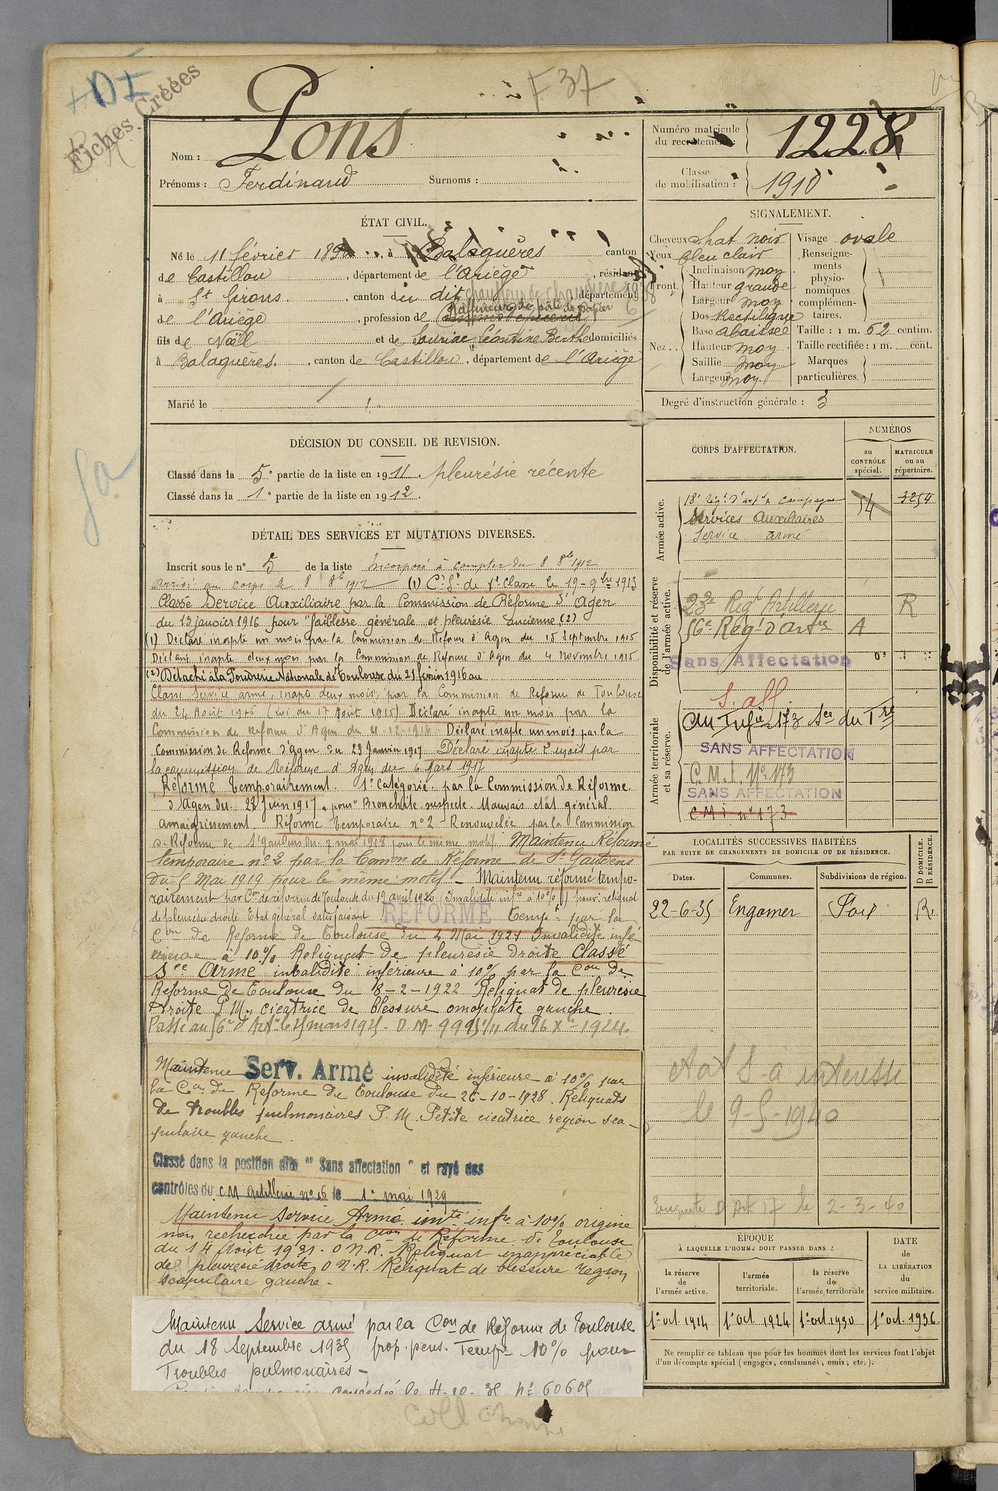 +DI
Fiches Créées
F 37
Nom : Pons
Prénoms : Ferdinand Surnoms :
Numéro matricule du recrutement : 1228
Classe de mobilisation : 1910
ÉTAT CIVIL.
Né le 11 février 1890, à Balaguères canton
de Castillon, département de l'Ariège, résidant
à St Girons, canton du dit, département
de l'Ariège, profession de
Raffineur de pâte de papier
fils de Noël et de Souriac Léontine Berthe domiciliés
à Balaguères, canton de Castillon, département de l'Ariège
Marié le
SIGNALEMENT.
Cheveux chat noir Visage ovale
Yeux bleu clair
Front. Inclinaison moy
Hauteur grande
Largeur moy
Nez. Dos Rectiligne
Base abaissée
Hauteur moy
Saillie moy
Largeur moy.
Renseignements physionomiques complémentaires.
Taille : 1 m. 62 centim.
Taille rectifiée : 1 m. cent.
Marques particulières
Degré d'instruction générale : 3
DÉCISION DU CONSEIL DE REVISION.
Classé dans la 5e partie de la liste en 1911. pleurésie récente
Classé dans la 1e partie de la liste en 1912.
DÉTAIL DES SERVICES ET MUTATIONS DIVERSES.
Inscrit sous le n° 5 de la liste Incorporé à compter du 8 8bre 1912
arrivé au corps le 8 8bre 1912 (1) Ct St de 1e Classe le 19-9bre 1913
Classé Service Auxiliaire par la Commission de Réforme d'Agen
du 12 janvier 1916 pour "faiblesse générale et pleurésie ancienne (2)
(1) Déclaré inapte un mois par la Commission de Réforme d'Agen du 15 Septembre 1915
Déclaré inapte deux mois par la Commission de Réforme d'Agen du 4 Novembre 1915
(2) Détaché à la Poudrerie Nationale de Toulouse du 21 février 1916 au
Classé Service armé, inapte deux mois, par la Commission de Réforme de Toulouse
du 24 Août 1916 (Loi du 17 Août 1915) Déclaré inapte un mois par la
Commission de Réforme d'Agen du 4-12-1916. Déclaré inapte un mois par la
Commission de Réforme d'Agen du 23 Janvier 1917 Déclaré inapte 2 mois par
la commission de Réforme d'Agen du 6 Mars 1917
Réformé temporairement 1e Catégorie par la Commission de Réforme
d'Agen du 22 Juin 1917, pour "Bronchite suspecte. Mauvais état général
amaigrissement. Réforme temporaire n° 2 Renouvelée par la Commission
de Réforme de St Gaudens du 7 mai 1918 pour le même motif. Maintenu Réformé
temporaire n° 2 par la Comon de Réforme de St Gaudens
du 5 Mai 1919 pour le même motif - Maintenu réformé tempo-
rairement par Con de réforme de Toulouse du 19 avril 1920 (Invalidité infre à 10%) pour: reliquat
de pleurésie droite Etat général satisfaisant RÉFORMÉ Tempre par la
Con de Réforme de Toulouse du 2 Mai 1921 Invalidité infé
rieure à 10% Reliquat de pleurésie droite Classé
Sce Armé invalidité inférieure à 10% par la Con de
Réforme de Toulouse du 8-2-1922 Reliquat de pleurésie
droite P.M. cicatrice de blessure omoplate gauche.
Passé au 56e d'Arte le 25 mars 1925. D.M. 9995 1/11 du 26 Xbre 1924.
Maintenu Serv. Armé invalidité inférieure à 10% par
la Con de Réforme de Toulouse du 26-10-1928. Reliquats
de troubles pulmonaires P.M. Petite cicatrice région sca-
pulaire gauche.
Classé dans la position dite "Sans affectation" et rayé des
contrôles du CM Artillerie n° 16 le 1er mai 1929
Maintenu Service Armé, inté infre à 10% origine
non recherchée par la Con de Réforme de Toulouse
du 14 Août 1931. O.N.R. Reliquat inappréciable
de pleurésie droite, O.N.R. Reliquat de blessure région
scapulaire gauche.
Maintenu Service armé par la Con de Réforme de Toulouse
du 18 Septembre 1935 prop. pens. Tempre 10% pour
Troubles pulmonaires -
concédée le 4-10-35 N° 60605
CORPS D'AFFECTATION.
NUMÉROS
au CONTRÔLE spécial.
MATRICULE ou au répertoire.
Armée active.
18e Régt d'Arte de campagne 14 3254
Services Auxiliaires
Service armé
Disponibilité et réserve de l'armée active.
23e Régt Artillerie R
56e Régt d'Arte A
Sans Affectation
Armée territoriale et sa réserve.
S. aff
CM Infie 173 Son du Tre
SANS AFFECTATION
C.M.I. N° 173
SANS AFFECTATION
CMI n° 173
LOCALITÉS SUCCESSIVES HABITÉES
PAR SUITE DE CHANGEMENTS DE DOMICILE OU DE RÉSIDENCE.
Dates. Communes. Subdivisions de région. D DOMICILE. R RÉSIDENCE.
22-6-35 Engomer Foix R.
le 9-5-1940
le 2-3-40
ÉPOQUE
À LAQUELLE L'HOMME DOIT PASSER DANS :
la réserve de l'armée active.
l'armée territoriale.
la réserve de l'armée territoriale
DATE de LA LIBÉRATION du service militaire.
1er oct. 1914 1er Oct. 1924 1er oct. 1930 1er Oct. 1936
Ne remplir ce tableau que pour les hommes dont les services font l'objet
d'un décompte spécial (engagés, condamnés, omis, etc.).